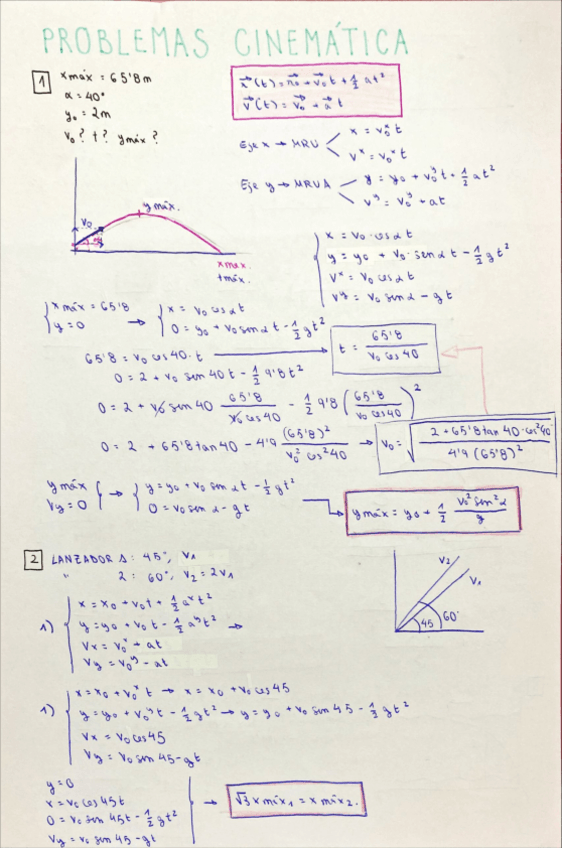 PROBLEMAS CINEMÁTICA
1 xmáx = 65'8m
α = 40°
y₀ = 2m
v₀? t? ymáx?
x⃗(t) = r⃗₀ + v⃗₀t + 1/2 at²
v⃗(t) = v⃗₀ + a⃗ t
Eje x → MRU x = v₀ˣt
vˣ = v₀ˣt
Eje y → MRUA y = y₀ + v₀ʸt + 1/2 at²
vʸ = v₀ʸ + at
ymáx.
v₀
α
xmáx.
tmáx.
x = v₀·cosαt
y = y₀ + v₀·senαt - 1/2 gt²
vˣ = v₀ cosαt
vʸ = v₀ senα - gt
xmáx = 65'8
y = 0
→ x = v₀ cosαt
0 = y₀ + v₀ senαt - 1/2 gt²
65'8 = v₀ cos40·t → t = 65'8 / v₀ cos40
0 = 2 + v₀ sen40t - 1/2 9'8t²
0 = 2 + v₀ sen40 65'8 / v₀ cos40 - 1/2 9'8 (65'8 / v₀ cos40)²
0 = 2 + 65'8tan40 - 4'9 (65'8)² / v₀² cos²40 → v₀ = √(2 + 65'8tan40·cos²40 / 4'9(65'8)²)
ymáx
Vy = 0
→ y = y₀ + v₀ senαt - 1/2 gt²
0 = v₀ senα - gt
→ ymáx = y₀ + 1/2 v₀² sen²α / g
2 LANZADOR 1: 45°, V₁
" 2: 60°, V₂ = 2V₁
V₂
V₁
45 60°
1) x = x₀ + v₀t + 1/2 aˣt²
y = y₀ + v₀t - 1/2 aʸt² →
Vx = v₀ˣ + at
Vy = v₀ʸ - at
1) x = x₀ + v₀ˣt → x = x₀ + v₀ cos45
y = y₀ + v₀ʸt - 1/2 gt² → y = y₀ + v₀ sen45 - 1/2 gt²
Vx = v₀ cos45
Vy = v₀ sen45-gt
y = 0
x = v₀ cos45t
0 = v₀ sen45t - 1/2 gt²
Vy = v₀ sen45-gt
→ √3 xmáx₁ = xmáx₂.